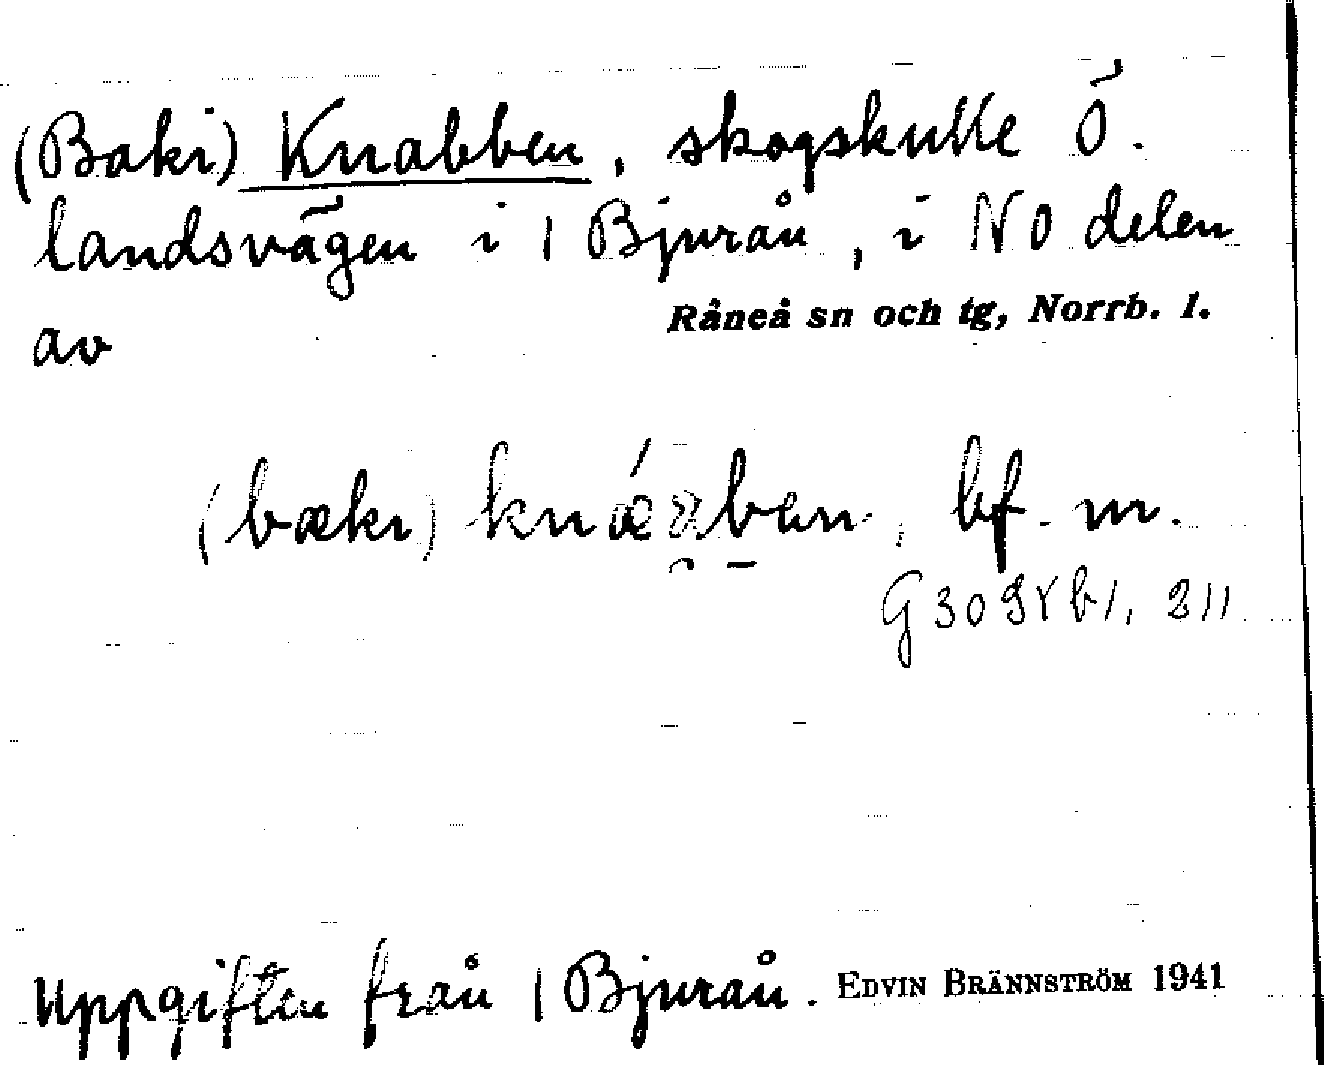 (Baki) Knabben, skogskulle Ö.
landsvägen i 1 Bjurån, i NO delen
av
Råneå sn och tg, Norrb. l.
(bæki) knǽa̯b̲en, bf. m.
G 30 9Yb1, 211
Uppgiften från 1 Bjurån. EDVIN BRÄNNSTRÖM 1941